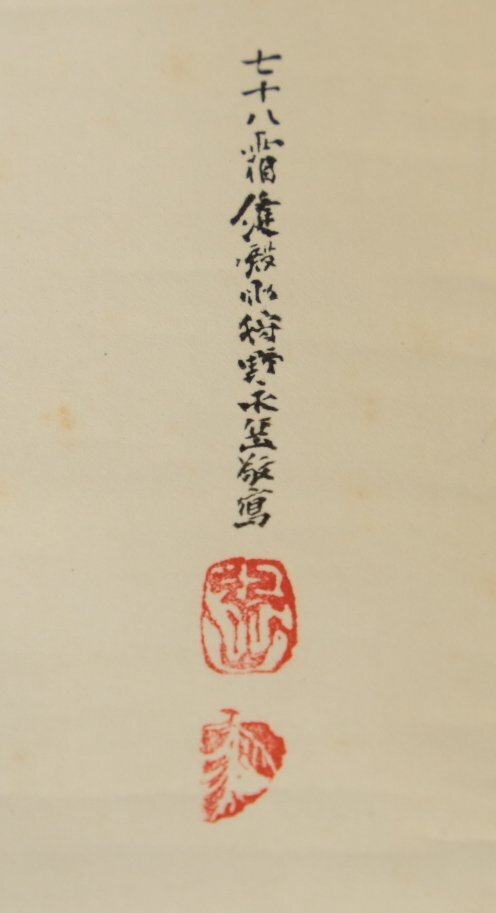 七十八霜健殿狩野永敬寫